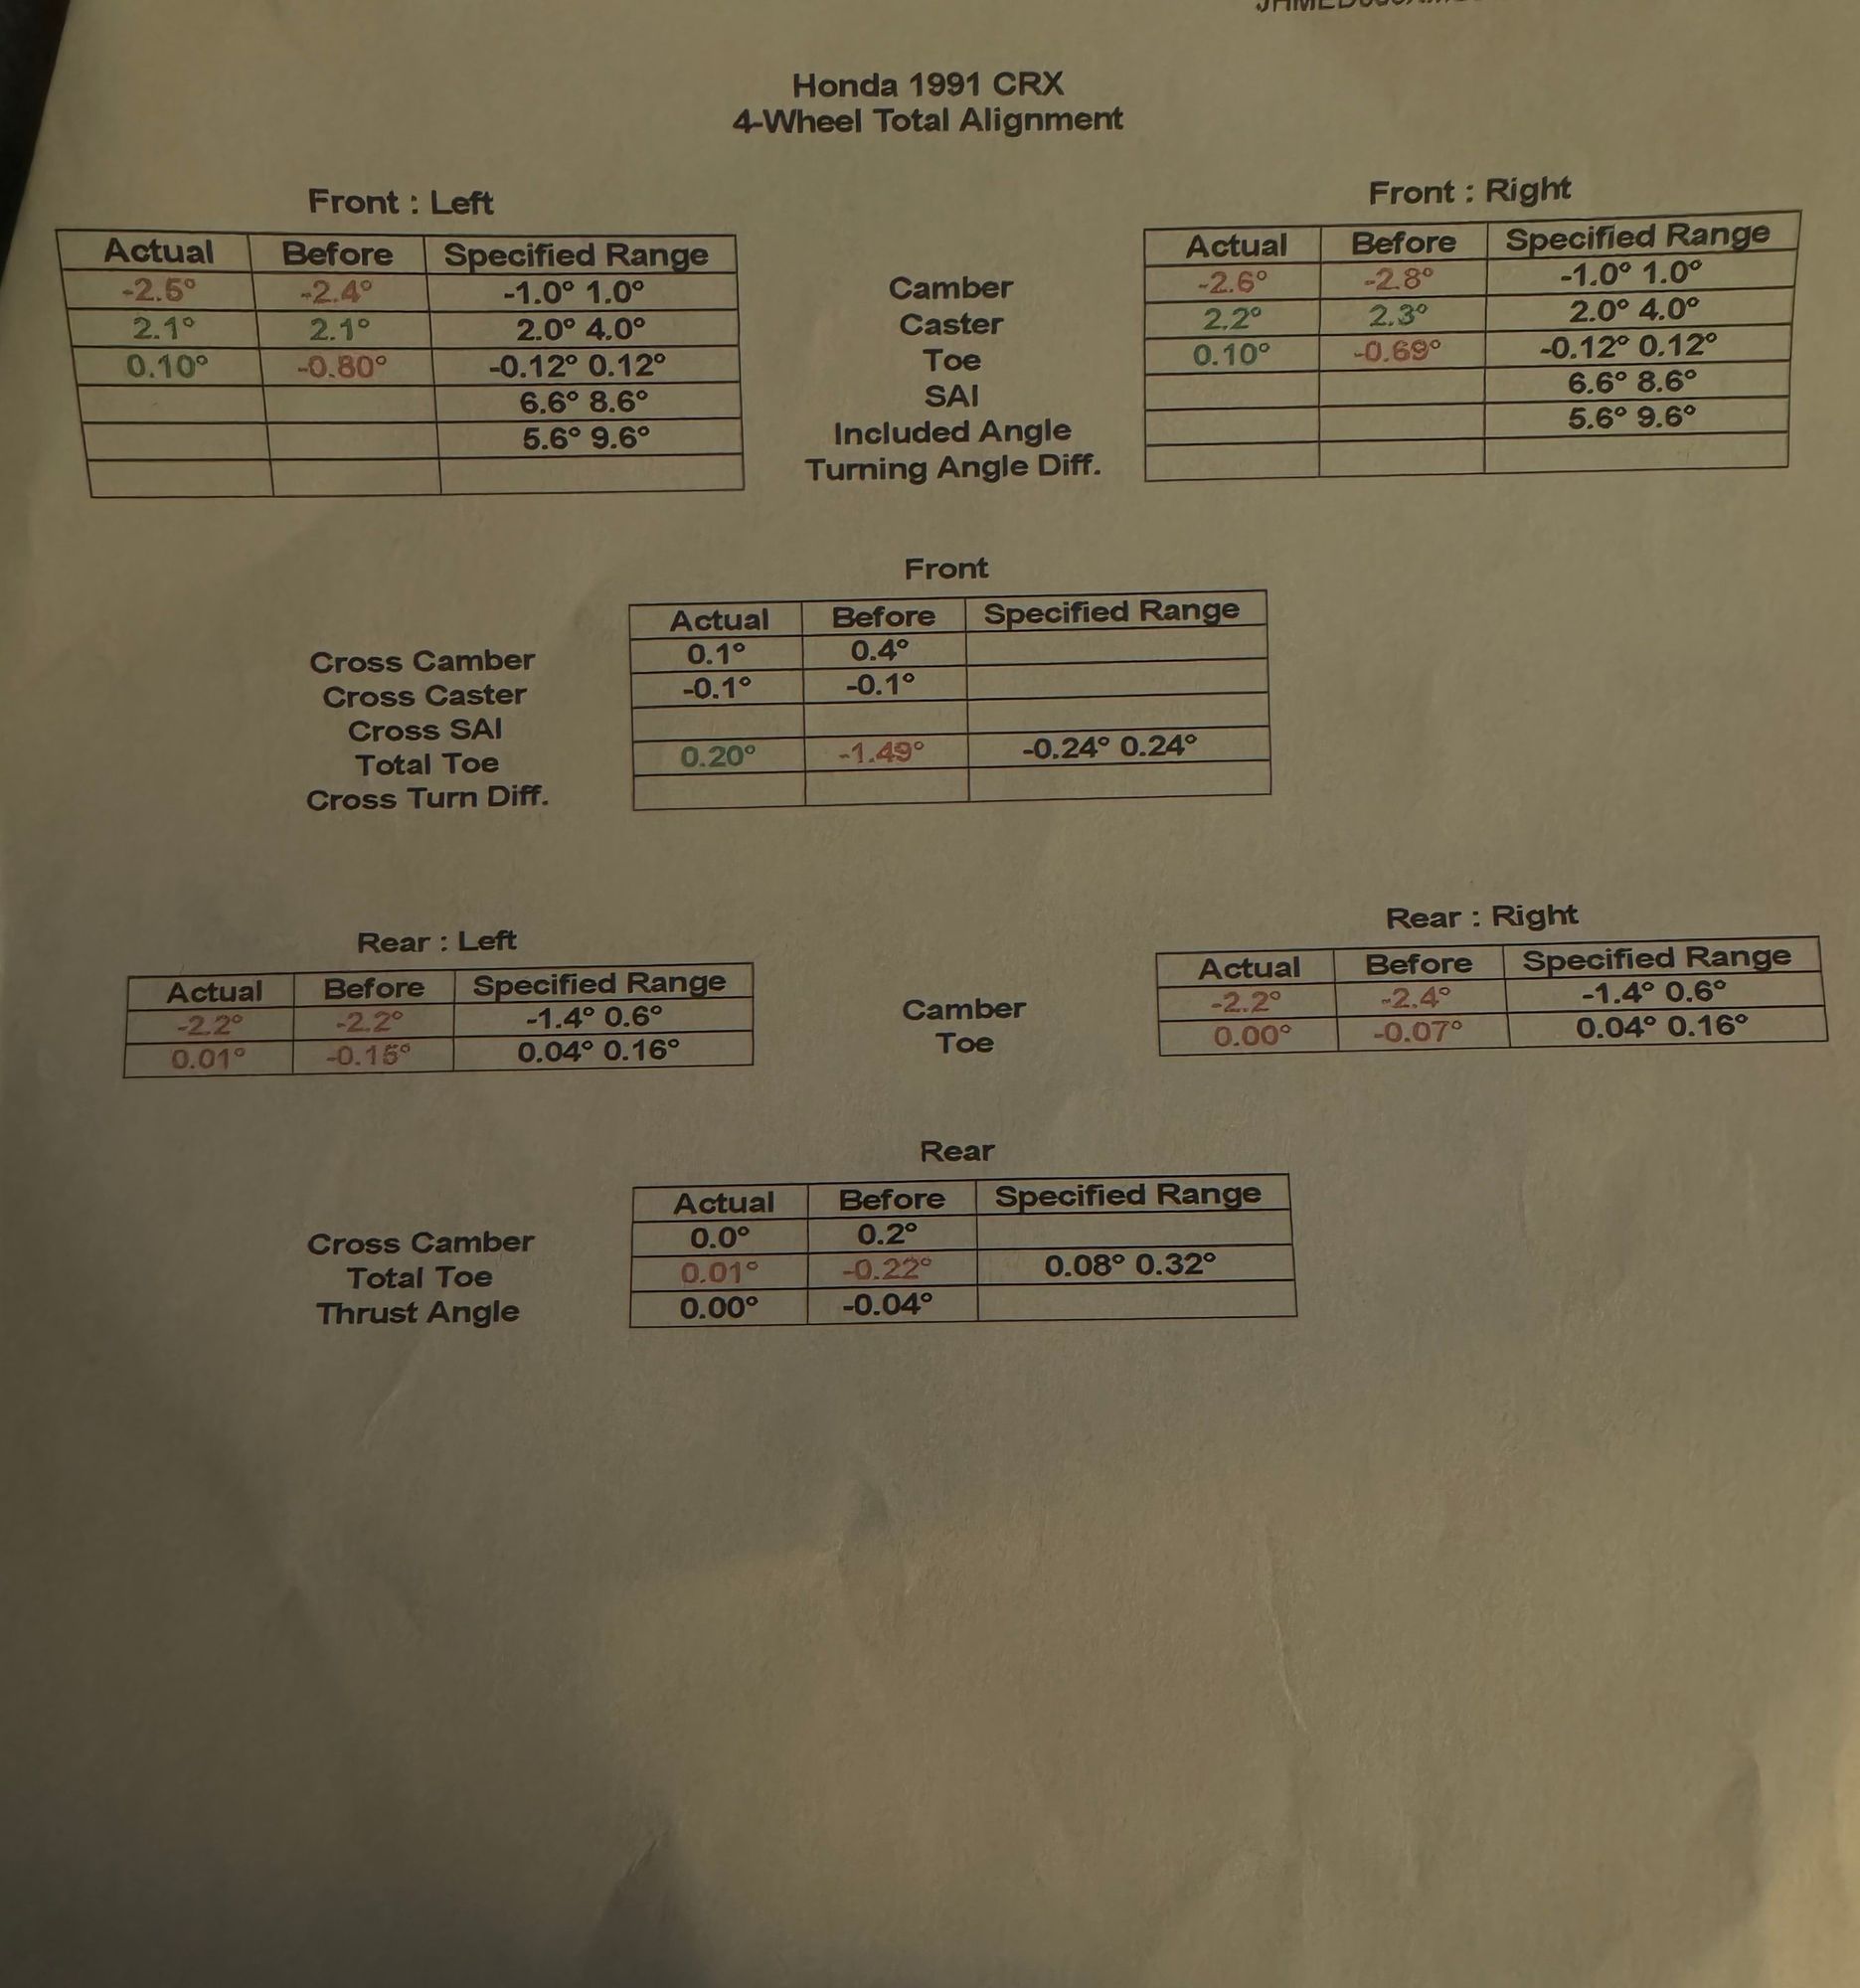 Honda 1991 CRX
4-Wheel Total Alignment
Front : Left
Front : Right
Actual Before Specified Range
Actual Before Specified Range
-2.5° -2.4° -1.0° 1.0° Camber -2.6° -2.8° -1.0° 1.0°
2.1° 2.1° 2.0° 4.0° Caster 2.2° 2.3° 2.0° 4.0°
0.10° -0.80° -0.12° 0.12° Toe 0.10° -0.69° -0.12° 0.12°
6.6° 8.6° SAI 6.6° 8.6°
5.6° 9.6° Included Angle 5.6° 9.6°
Turning Angle Diff.
Front
Actual Before Specified Range
Cross Camber 0.1° 0.4°
Cross Caster -0.1° -0.1°
Cross SAI
Total Toe 0.20° -1.49° -0.24° 0.24°
Cross Turn Diff.
Rear : Left
Rear : Right
Actual Before Specified Range
Actual Before Specified Range
-2.2° -2.2° -1.4° 0.6° Camber -2.2° -2.4° -1.4° 0.6°
0.01° -0.15° 0.04° 0.16° Toe 0.00° -0.07° 0.04° 0.16°
Rear
Actual Before Specified Range
Cross Camber 0.0° 0.2°
Total Toe 0.01° -0.22° 0.08° 0.32°
Thrust Angle 0.00° -0.04°